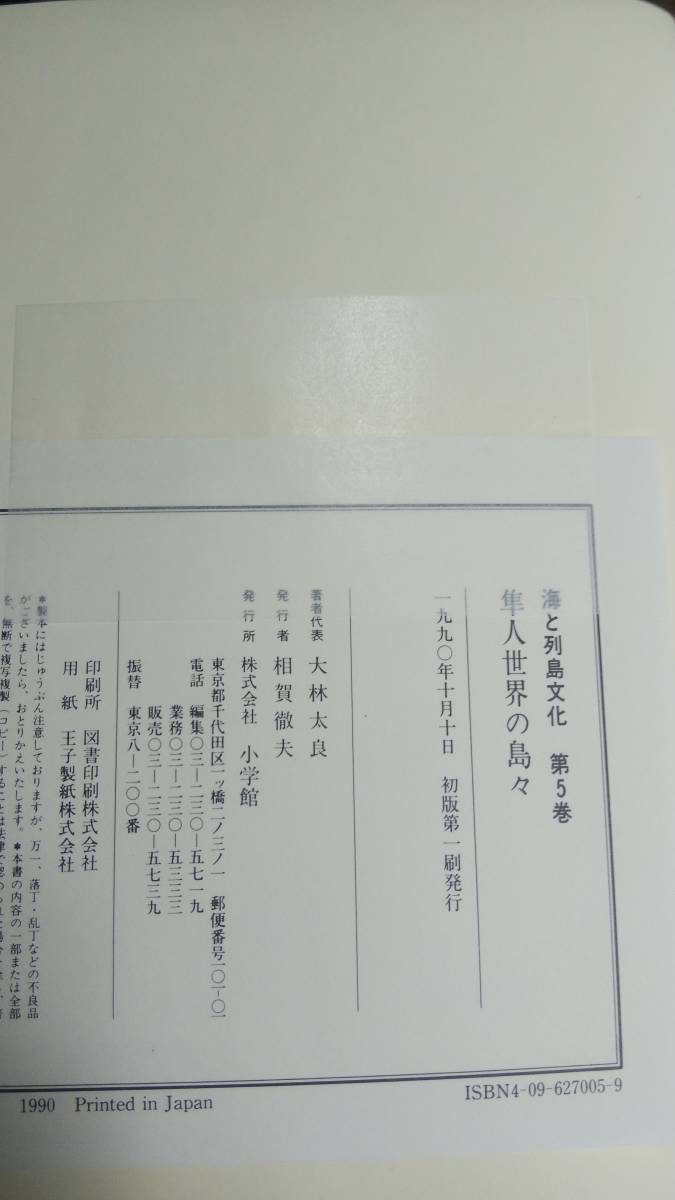 海と列島文化　第5巻
隼人世界の島々
一九九〇年十月十日　初版第一刷発行
著者代表　大林太良
発行者　相賀徹夫
発行所　株式会社　小学館
東京都千代田区一ッ橋二ノ三ノ一　郵便番号一〇一-〇一
電話　編集〇三―二三〇―五七一九
業務〇三―二三〇―五三三三
販売〇三―二三〇―五七三九
振替　東京八―二〇〇番
印刷所　図書印刷株式会社
用　紙　王子製紙株式会社
＊製本にはじゅうぶん注意しておりますが、万一、落丁・乱丁などの不良品
がございましたら、おとりかえいたします。＊本書の内容の一部または全部
を、無断で複写複製(コピー)することは法律で認められた場合を
ISBN4-09-627005-9
1990　Printed in Japan